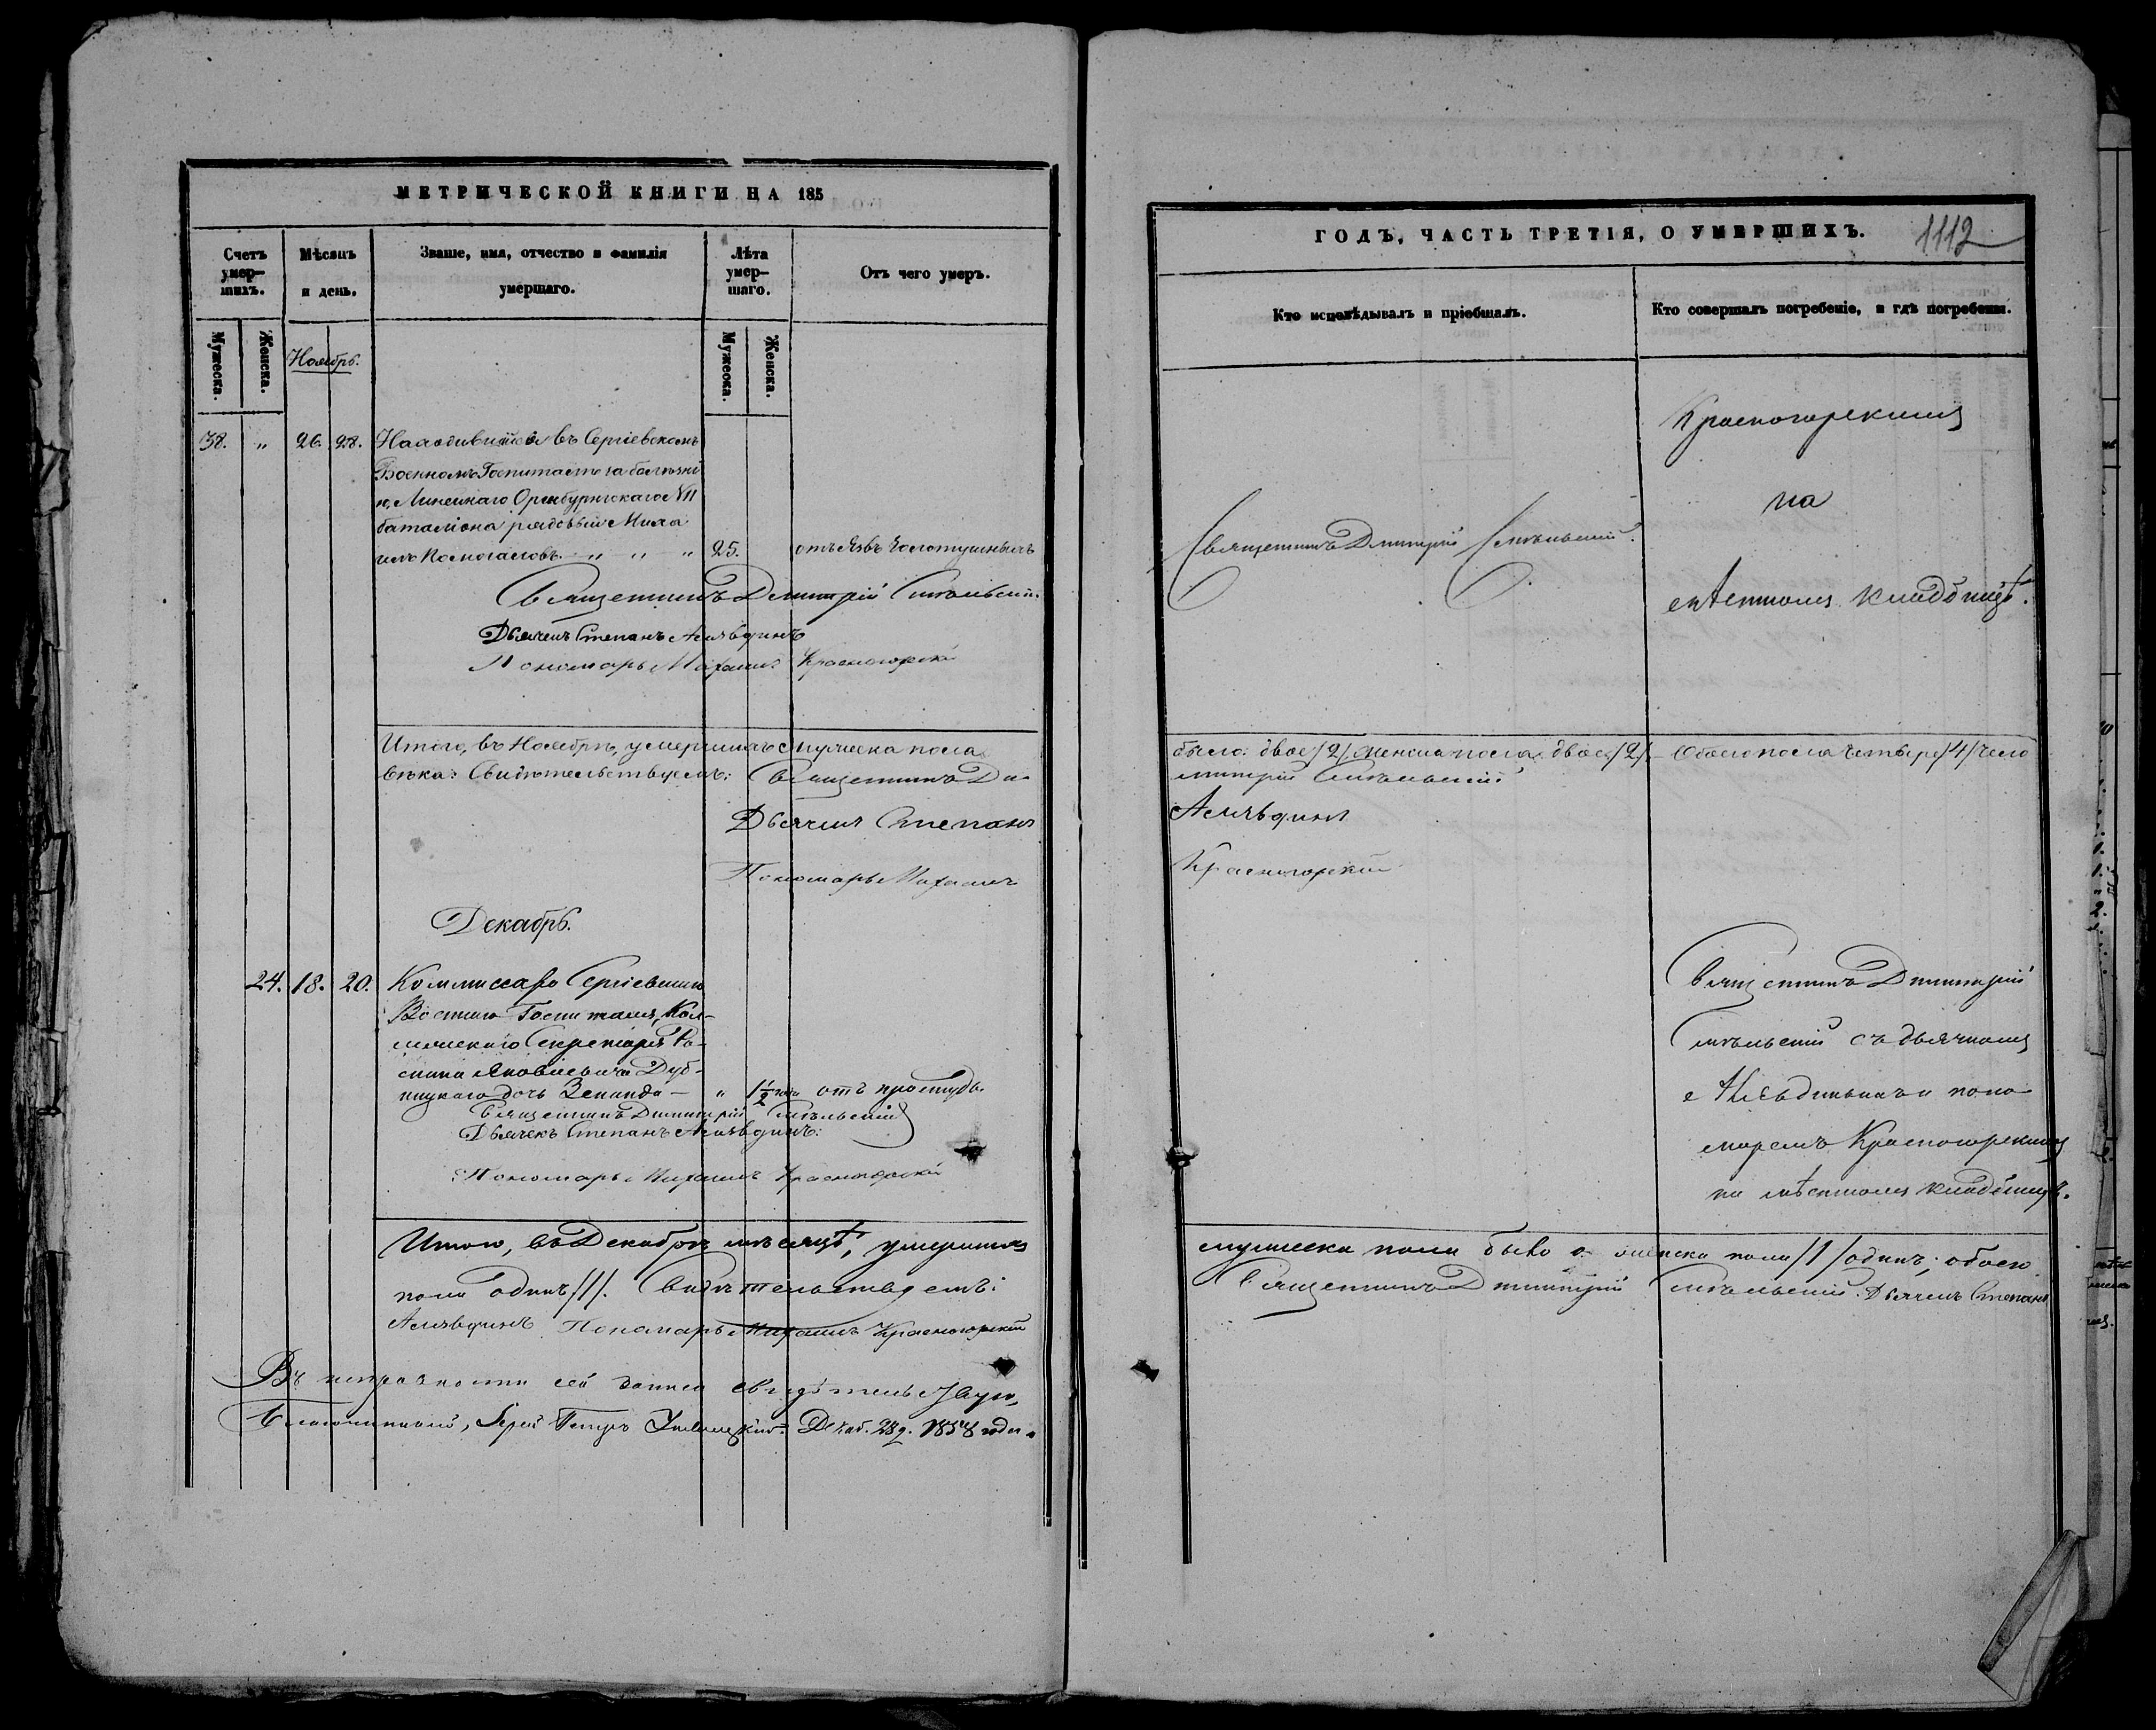 МЕТРИЧЕСКОЙ КНИГИ НА 185
Счетъ умер-шихъ.
Мѣсяцъ и день.
Званіе, имя, отчество и фамилія умершаго.
Лѣта умер-шаго.
Отъ чего умеръ.
Мужеска.
Женска.
Ноябрь.
Мужеска.
Женска.
38. „ 26. 28. Находившійся въ Сергіевскомъ
Военномъ Госпиталѣ за болѣзні
ю, Линейнаго Оренбургскаго № 11
баталіона рядовый Миха
илъ „ „ „ 25. отъ язвъ золотушныхъ
Священникъ Димитрій
Дьячекъ Степанъ
Пономарь Михаилъ Красногорскій
Итого, въ Ноябрѣ, умершихъ мужеска пола
вѣка: Свидѣтельствуемъ: Священникъ Ди-
Дьячекъ Степанъ
Пономарь Михаилъ
Декабрь.
24. 18. 20. Коммиссара Сергіевскаго
Военнаго Госпиталя, Кол-
лежскаго Секретаря
Яковлевича Дуб-
ницкаго дочь Зенаида — „ 1½ года отъ простуды.
Священникъ Димитрій
Дьячекъ Степанъ
Пономарь Михаилъ Красногорскій
Итого, въ Декабрѣ мѣсяцѣ, умершихъ
пола одинъ /1/. Свидѣтельствуемъ:
Пономарь Михаилъ Красногорскій
Въ исправности сей записи свидѣтельствую,
Благочинный, Іерей Петръ Декаб. 28 д. 1854 года.
ГОДЪ, ЧАСТЬ ТРЕТІЯ, О УМЕРШИХЪ.
1112
Кто исповѣдывалъ и пріобщалъ.
Кто совершалъ погребеніе, и гдѣ погребены.
Красногорскимъ
на
Священникъ Димитрій
мѣстномъ кладбищѣ.
было: двое /2/ женска пола двое /2/ Обоего пола четыре /4/ чело
митрій
Красногорскій
Священникъ Димитрій
съ дьячкомъ
и поно-
маремъ Красногорскимъ
на мѣстномъ кладбищѣ.
мужеска пола было 0. женска пола /1/ одинъ; обоего
Священникъ Димитрій Дьячекъ Степанъ